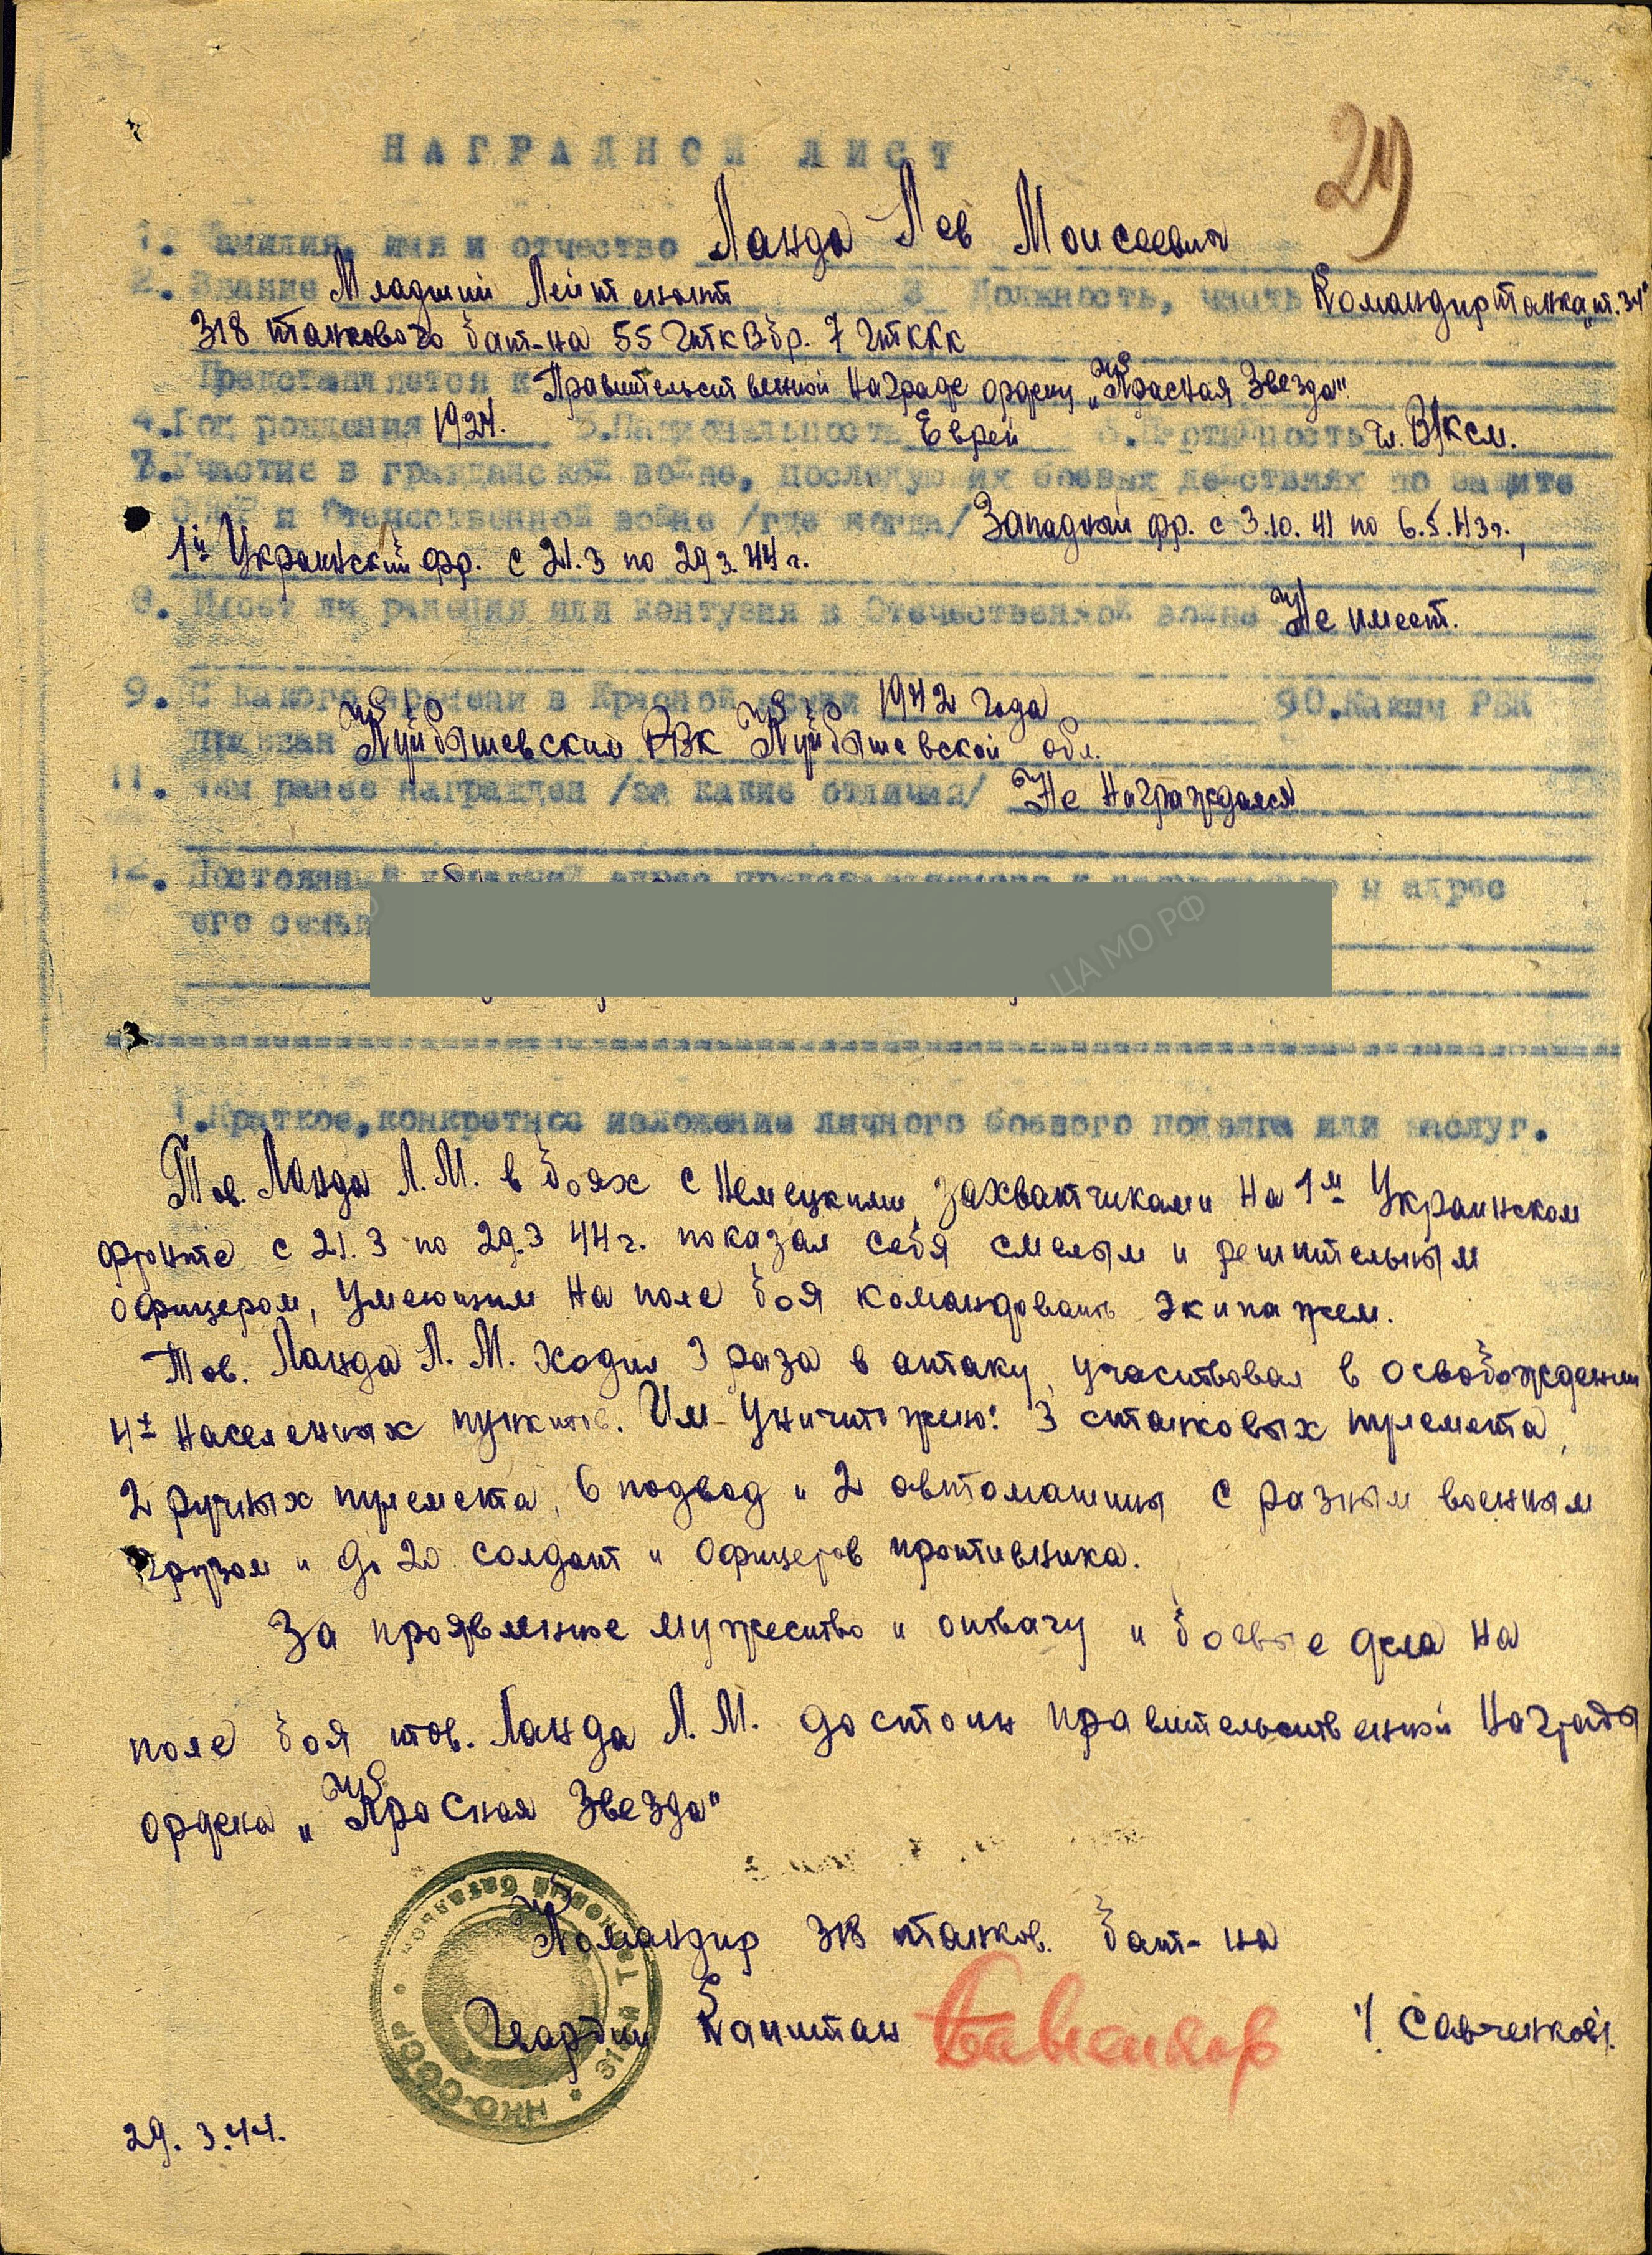 29
НАГРАДНОЙ ЛИСТ
1. Фамилия, имя и отчество Ланда Лев Моисеевич
2. Звание Младший Лейтенант 3 Должность, часть Командир танка „т. 34"
318 танкового бат-на 55 Гв тк Збр. 7 Гв тккк
Представляется к Правительственной награде ордену „Красная Звезда"
4. Год рождения 1924. 5. Национальность Еврей 6. Партийность чл. ВЛКСМ.
7. Участие в гражданской войне, последующих боевых действиях по защите
СССР и Отечественной войне /где когда/ Западный фр. с 3.10.41 по 6.5.43г.,
1й Украинский фр. с 21.3 по 29.3.44г.
8. Имеет ли ранения или контузия в Отечественной войне Не имеет.
9. С какого времени в Красной армии 1942 года 10. Каким РВК
призван Куйбышевским РВК Куйбышевской обл.
11. Чем ранее награжден /за какие отличия/ Не награждался
12. Постоянный и адрес
его семьи
1. Краткое, конкретное изложение личного боевого подвига или заслуг.
Тов. Ланда Л.М. в боях с немецкими захватчиками на 1м Украинском
фронте с 21.3 по 29.3 44г. показал себя смелым и решительным
офицером, умеющим на поле боя командовать экипажем.
Тов. Ланда Л.М. ходил 3 раза в атаку, участвовал в освобождении
4х населенных пунктов. Им уничтожено: 3 станковых пулемета,
2 ручных пулемета, 6 подвод и 2 автомашины с разным военным
грузом и до 20 солдат и офицеров противника.
За проявленное мужество и отвагу и боевые дела на
поле боя тов. Ланда Л.М. достоин правительственной награды
ордена „Красная Звезда"
Командир 318 танков. бат-на
Гвардии Капитан /Савченков/.
29.3.44.
НКО-СССР * 318 й Танковый батальон
ЦА МО РФ